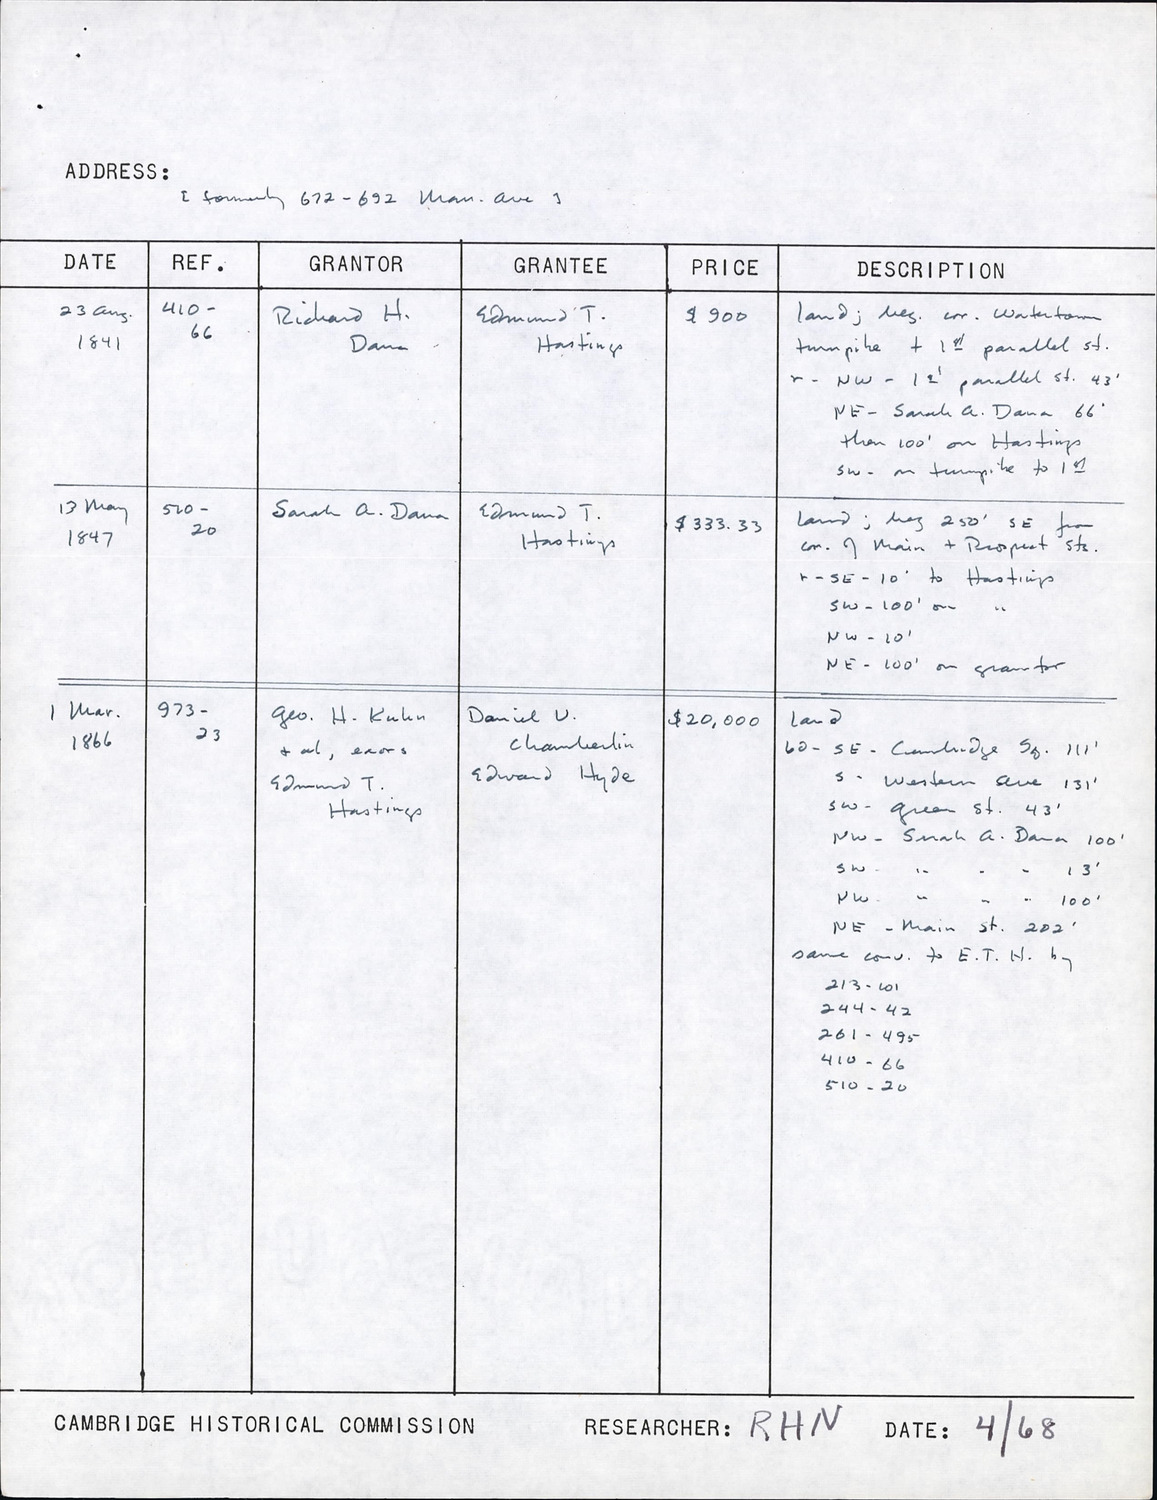 ADDRESS:
[ formerly 672-692 Mass. Ave ]
DATE REF. GRANTOR GRANTEE PRICE DESCRIPTION
23 Aug. 1841
410-66
Richard H. Dana
Edmund T. Hastings
$900
land; beg. cor. Watertown
turnpike + 1st parallel st.
r - NW - 1st parallel st. 43'
NE - Sarah A. Dana 66'
then 100' on Hastings
SW - on turnpike to 1st
13 May 1847
510-20
Sarah A. Dana
Edmund T. Hastings
$333.33
land; beg 250' SE from
cor. of Main + Prospect Sts.
r - SE - 10' to Hastings
SW - 100' on "
NW - 10'
NE - 100' on grantor
1 Mar. 1866
973-23
Geo. H. Kuhn
+ al, exors
Edmund T.
Hastings
Daniel U.
Chamberlin
Edward Hyde
$20,000
land
bo - SE - Cambridge Sq. 111'
S - Western Ave 131'
SW - Green St. 43'
NW - Sarah A. Dana 100'
SW - " " " 13'
NW - " " " 100'
NE - Main St. 202'
same conv. to E.T.H. by
213-101
244-42
261-495
410-66
510-20
CAMBRIDGE HISTORICAL COMMISSION RESEARCHER: RHN DATE: 4/68